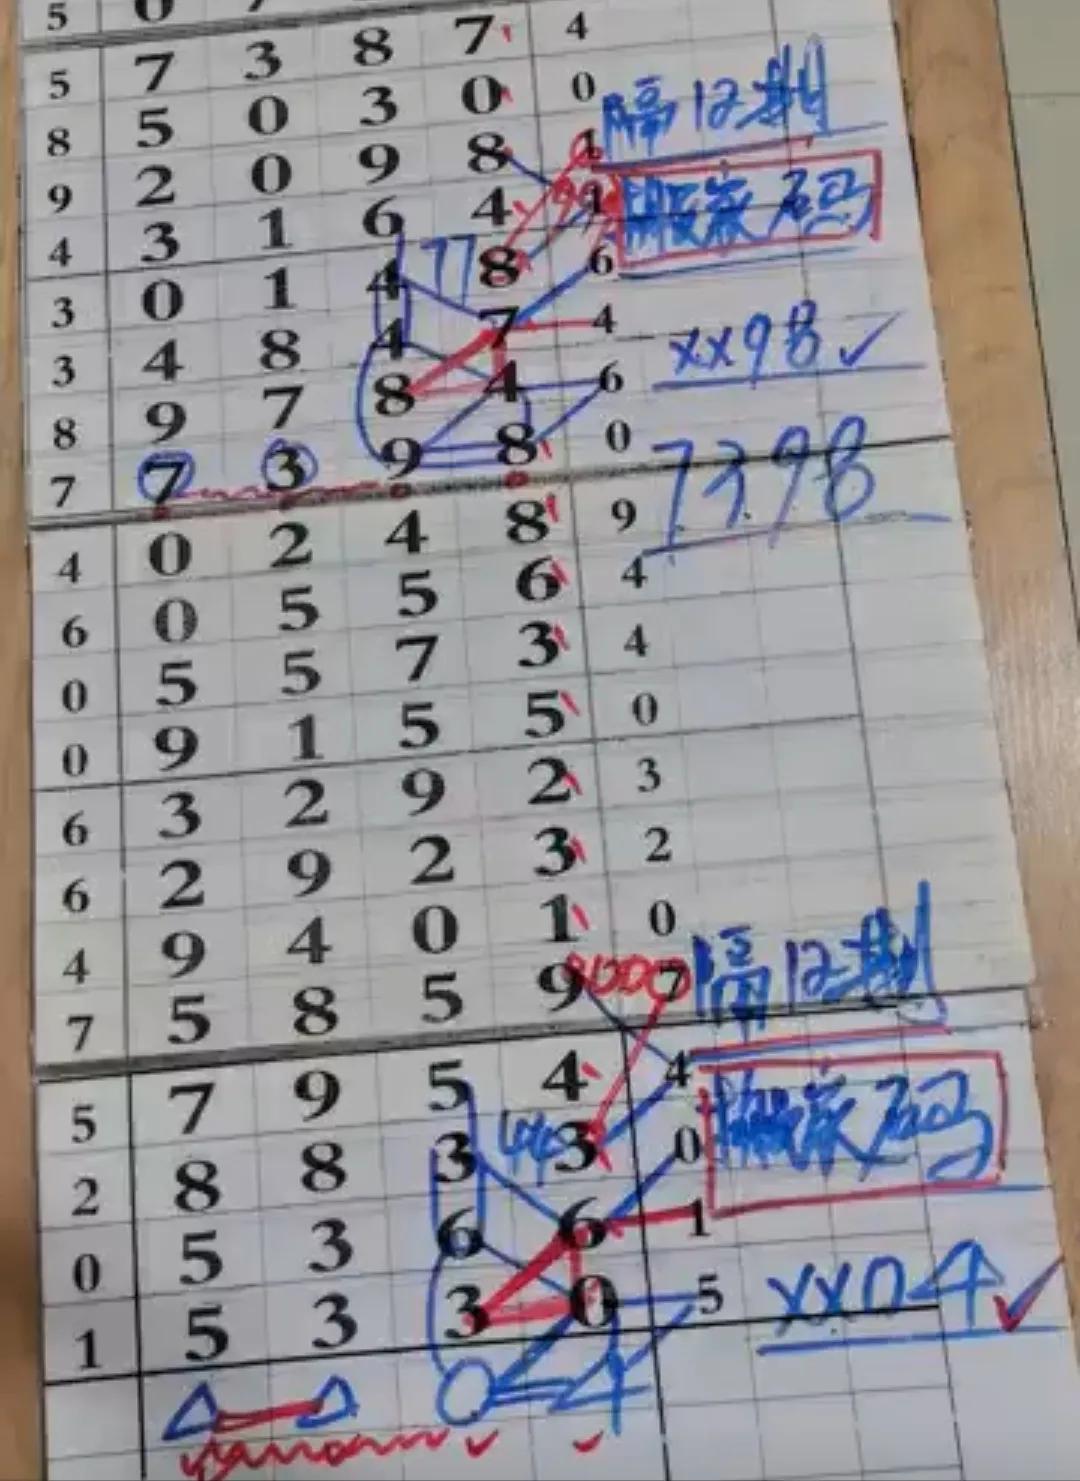 5 0
5 7 3 8 7 4
8 5 0 3 0 0 隔12期
9 2 0 9 8 1
4 3 1 6 4 1 搬家码
3 0 1 4 77 8 6
3 4 8 4 7 4 xx98✓
8 9 7 8 4 6
7 7 3 9 8 0 7398
4 0 2 4 8 9
6 0 5 5 6 4
0 5 5 7 3 4
0 9 1 5 5 0
6 3 2 9 2 3
6 2 9 2 3 2
4 9 4 0 1 0
7 5 8 5 9 7 隔12期
5 7 9 5 4 4
2 8 8 3 44 3 0 搬家码
0 5 3 6 6 1
1 5 3 3 0 5 xx04✓
0 4